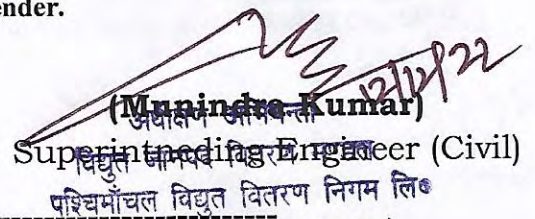 ender.
12/12/22
(Munindra Kumar)
अधीक्षण अभियन्ता
Superintneding Engineer (Civil)
विद्युत जानपद वितरण मण्डल
पश्चिमाँचल विद्युत वितरण निगम लि०